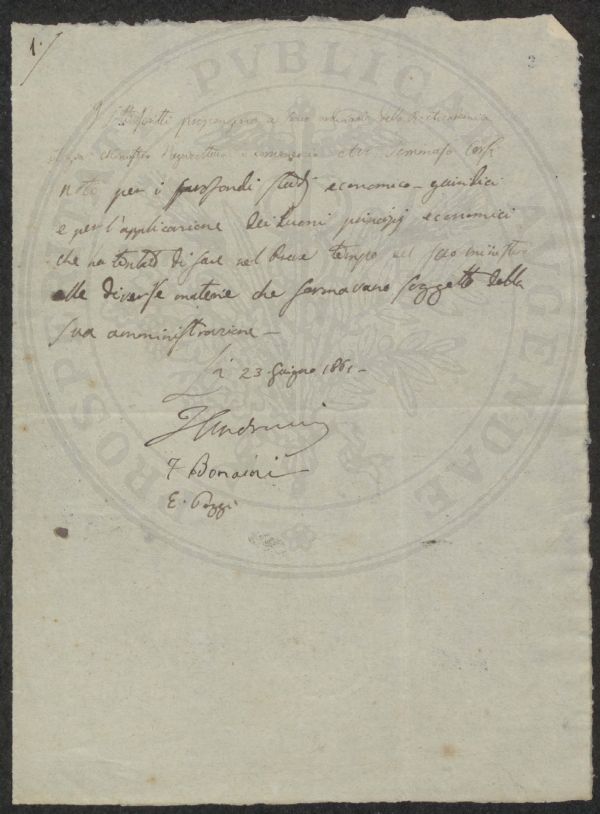 1.
2
I sottoscritti propongono a socio ordinario della R. Accademia
Ministro Agricoltura e commercio Avv. Tommaso Corsi
noto per i profondi studj economico-giuridici
e per l'applicazione dei buoni principj economici
che ha tentato di fare nel breve tempo del suo ministero
alle diverse materie che formavano soggetto della
sua amministrazione—
Li 23 Giugno 1861—
F. Bonaini
E. Poggi
PROSPERITATI PUBLICAE AUGENDAE